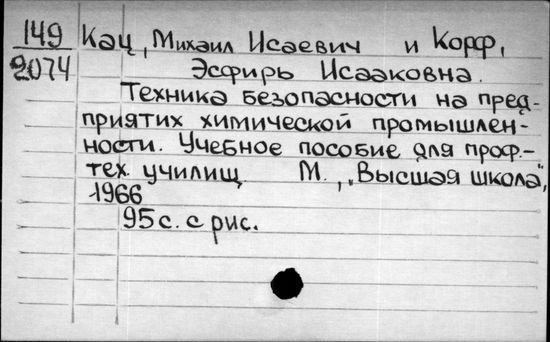 149 Кац, Михаил Исаевич и Корф,
2074 Эсфирь Исааковна.
Техника безопасности на пред-
приятих химической промышлен-
ности. Учебное пособие для проф.-
тех. училищ М., „Высшая школа",
1966
95 с. с рис.